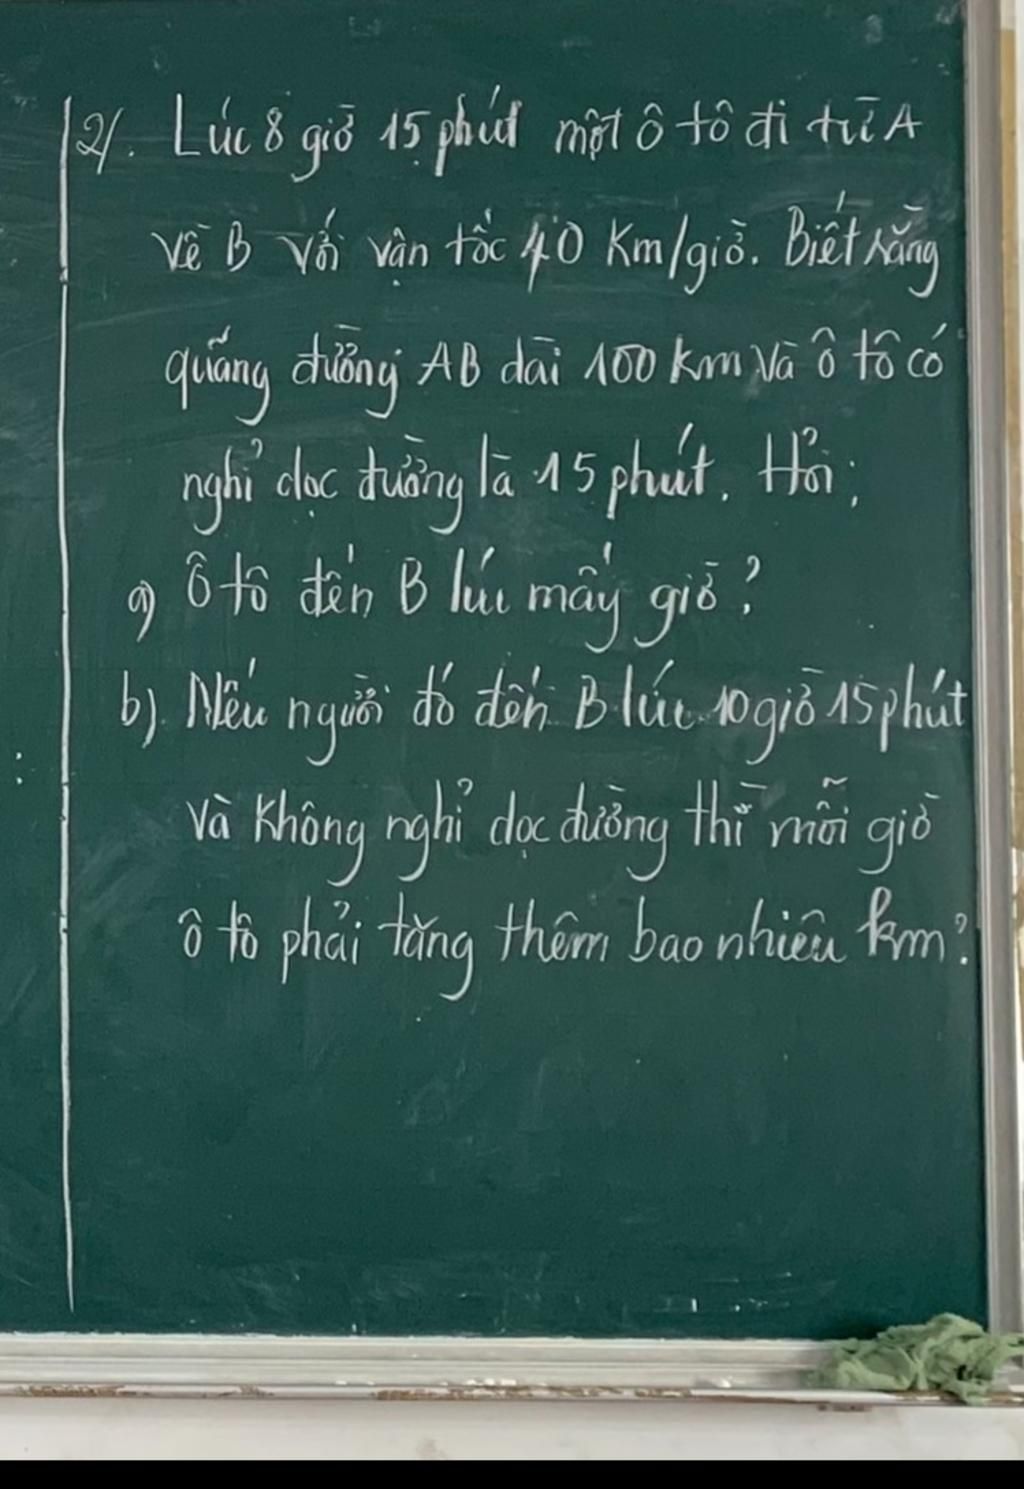 2/. Lúc 8 giờ 15 phút một ô tô đi từ A
về B với vận tốc 40 Km/giờ. Biết rằng
quãng đường AB dài 100 km và ô tô có
nghỉ dọc đường là 15 phút. Hỏi:
a) Ô tô đến B lúc mấy giờ?
b). Nếu người đó đến B lúc 10 giờ 15 phút
và không nghỉ dọc đường thì mỗi giờ
ô tô phải tăng thêm bao nhiêu km?